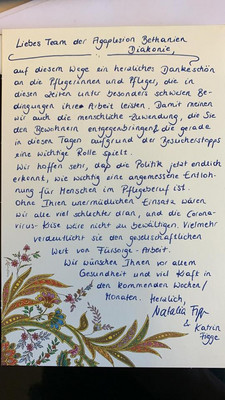 Liebes Team der Agaplesion Bethanien
Diakonie,
auf diesem Wege ein herzliches Dankeschön
an die Pflegerinnen und Pfleger, die in
diesen Zeiten unter besonders schweren Be-
dingungen ihre Arbeit leisten. Damit meinen
wir auch die menschliche Zuwendung, die Sie
den Bewohnern entgegenbringen & die gerade
in diesen Tagen aufgrund der Besucherstopps
eine wichtige Rolle spielt.
Wir hoffen sehr, dass die Politik jetzt endlich
erkennt, wie wichtig eine angemessene Entloh-
nung für Menschen im Pflegeberuf ist.
Ohne Ihren unermüdlichen Einsatz wären
wir alle viel schlechter dran, und die Corona-
virus-Krise wäre nicht zu bewältigen. Vielmehr
verdeutlicht sie den gesellschaftlichen
Wert von Fürsorge-Arbeit.
Wir wünschen Ihnen vor allem
Gesundheit und viel Kraft in
den kommenden Wochen/
Monaten. Herzlich,
Natalia
& Katrin
Figge